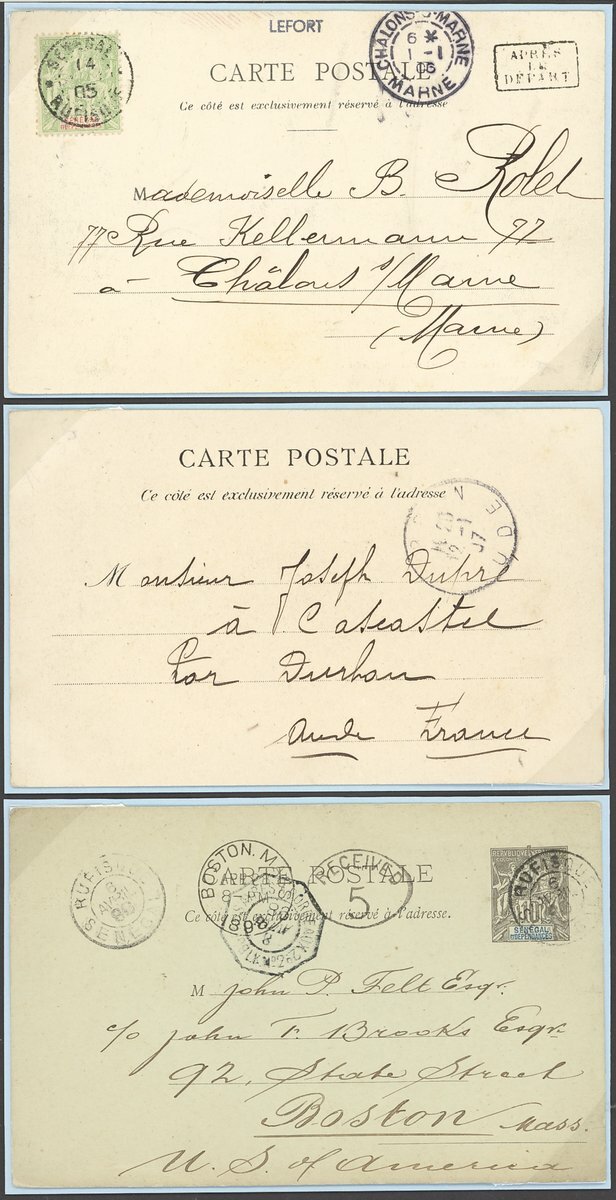 LEFORT
SENEGAL
14
05
RUFISQUE
CARTE POSTALE
CHALONS-S-MARNE
6 *
1 - 1
06
MARNE
APRÈS
LE
DÉPART
Ce côté est exclusivement réservé à l'adresse
Mademoiselle B. Rolet
77 Rue Kellermann 77
à Châlons s/Marne
(Marne)
CARTE POSTALE
Ce côté est exclusivement réservé à l'adresse
Monsieur Joseph Dupré
à Cascastel
Par Durban
Aude France
RUFISQUE
SENEGAL
BOSTON. MASS
1898
RECEIVED
5
CARTE POSTALE
RUFISQUE
SENEGAL
ET DÉPENDANCES
Ce côté est exclusivement réservé à l'adresse.
M John P. Felt Esqr.
c/o John F. Brooks Esqr.
92, State Street
Boston Mass.
U. S. of America